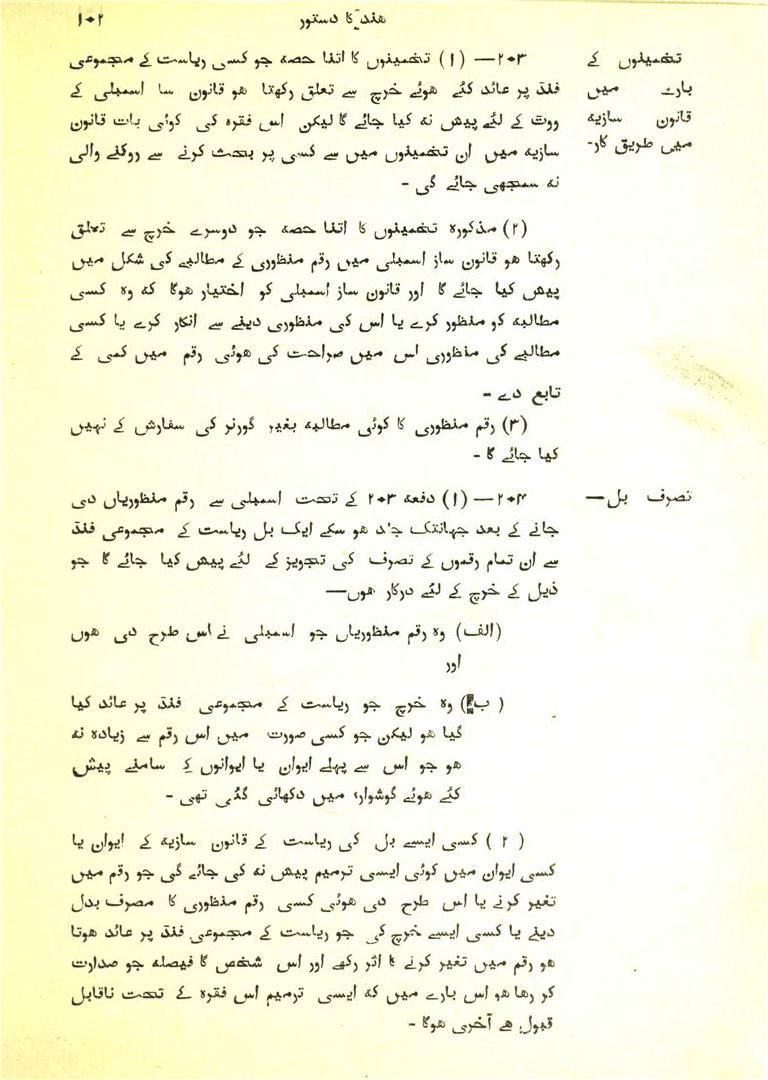 ہند کا دستور
۱۰۲
تخمینوں کے
بارے میں
قانون سازیہ
میں طریق کار-
۲۰۳— (۱) تخمینوں کا اتنا حصہ جو کسی ریاست کے مجموعی
فنڈ پر عائد کئے ہوئے خرچ سے تعلق رکھتا ہو قانون سا اسمبلی کے
ووٹ کے لئے پیش نہ کیا جائے گا لیکن اس فقرہ کی کوئی بات قانون
سازیہ میں ان تخمینوں میں سے کسی پر بحث کرنے سے روکنے والی
نہ سمجھی جائے گی -
(۲) مذکورہ تخمینوں کا اتنا حصہ جو دوسرے خرچ سے تعلق
رکھتا ہو قانون ساز اسمبلی میں رقم منظوری کے مطالبے کی شکل میں
پیش کیا جائے گا اور قانون ساز اسمبلی کو اختیار ہوگا کہ وہ کسی
مطالبہ کو منظور کرے یا اس کی منظوری دینے سے انکار کرے یا کسی
مطالبے کی منظوری اس میں صراحت کی ہوئی رقم میں کمی کے
تابع دے -
(۳) رقم منظوری کا کوئی مطالبہ بغیر گورنر کی سفارش کے نہیں
کیا جائے گا -
تصرف بل—
۲۰۴— (۱) دفعہ ۲۰۳ کے تحت اسمبلی سے رقم منظوریاں دی
جانے کے بعد جہانتک جلد ہو سکے ایک بل ریاست کے مجموعی فنڈ
سے ان تمام رقموں کے تصرف کی تجویز کے لئے پیش کیا جائے گا جو
ذیل کے خرچ کے لئے درکار ہوں—
(الف) وہ رقم منظوریاں جو اسمبلی نے اس طرح دی ہوں
اور
(ب) وہ خرچ جو ریاست کے مجموعی فنڈ پر عائد کیا
گیا ہو لیکن جو کسی صورت میں اس رقم سے زیادہ نہ
ہو جو اس سے پہلے ایوان یا ایوانوں کے سامنے پیش
کئے ہوئے گوشوارہ میں دکھائی گئی تھی -
(۲) کسی ایسے بل کی ریاست کے قانون سازیہ کے ایوان یا
کسی ایوان میں کوئی ایسی ترمیم پیش نہ کی جائے گی جو رقم میں
تغیر کرنے یا اس طرح دی ہوئی کسی رقم منظوری کا مصرف بدل
دینے یا کسی ایسے خرچ کی جو ریاست کے مجموعی فنڈ پر عائد ہوتا
ہو رقم میں تغیر کرنے کا اثر رکھے اور اس شخص کا فیصلہ جو صدارت
کر رہا ہو اس بارے میں کہ ایسی ترمیم اس فقرہ کے تحت ناقابل
قبول ہے آخری ہوگا -